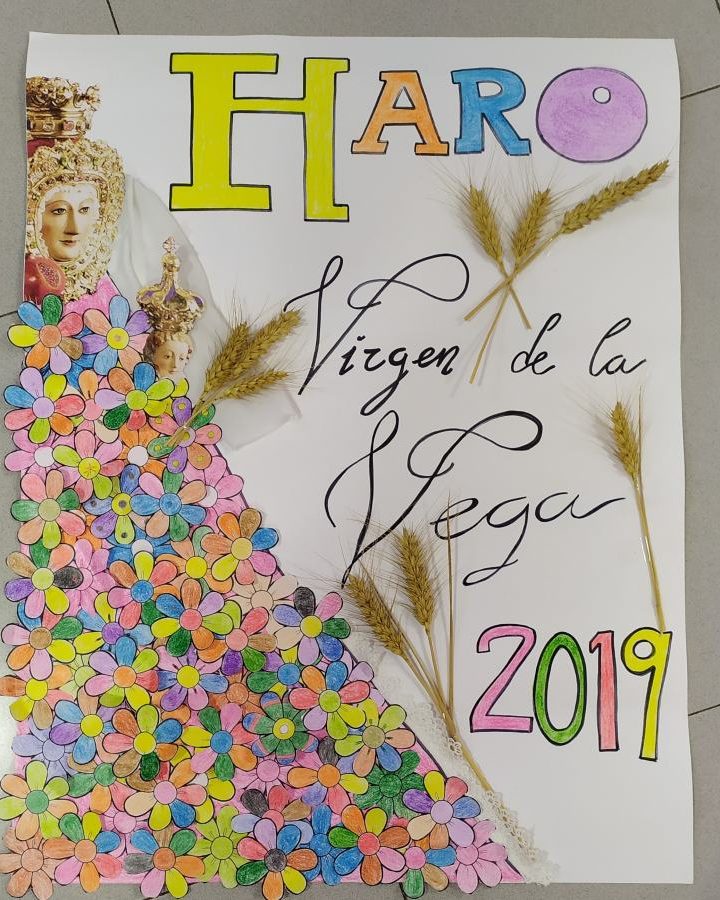 HARO
Virgen de la
Vega
2019